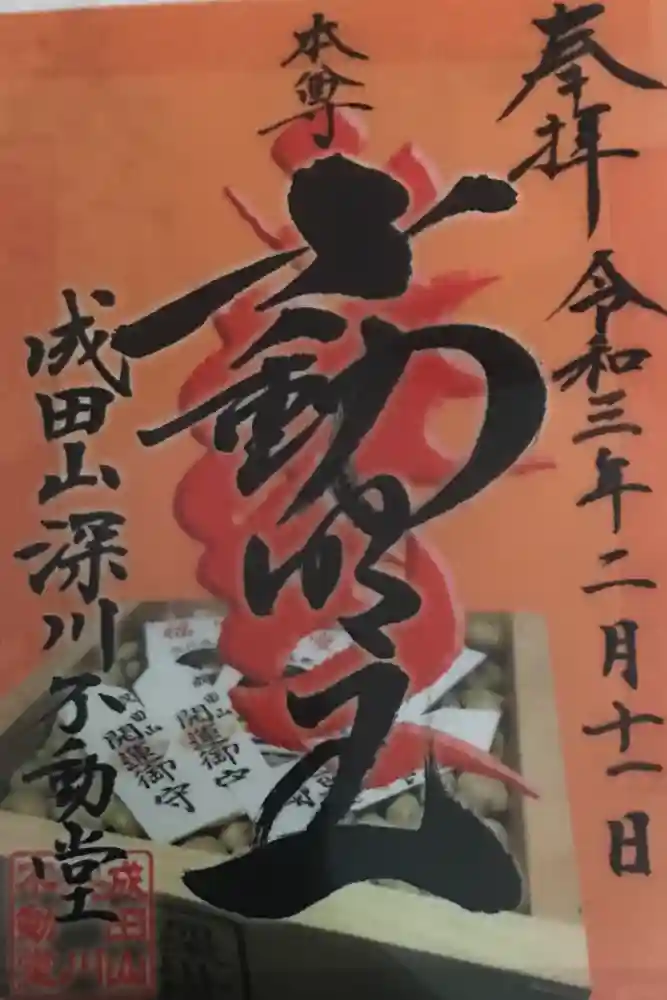 奉拝
令和三年二月十一日
本尊
不動明王
成田山深川不動堂
開運御守
成田山
開運御守
成田山
不動堂